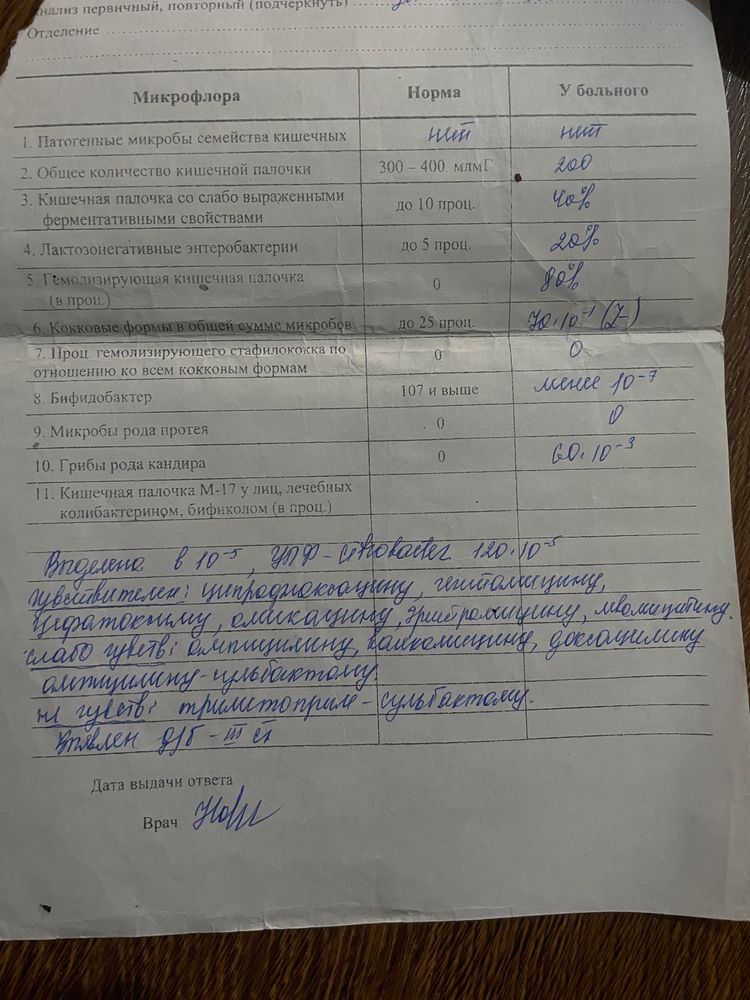 анализ первичный, повторный (подчеркнуть)
Отделение
Микрофлора Норма У больного
1. Патогенные микробы семейства кишечных нет нет
2. Общее количество кишечной палочки 300 – 400. млмГ 200
3. Кишечная палочка со слабо выраженными
ферментативными свойствами до 10 проц. 40%
4. Лактозонегативные энтеробактерии до 5 проц. 20%
5. Гемолизирующая кишечная палочка
(в проц.) 0 80%
6. Кокковые формы в общей сумме микробов до 25 проц. 70·10⁻¹
7. Проц. гемолизирующего стафилококка по
отношению ко всем кокковым формам 0 0
8. Бифидобактер 107 и выше менее 10⁻⁷
9. Микробы рода протея 0 0
10. Грибы рода кандира 0 60·10⁻³
11. Кишечная палочка М-17 у лиц, лечебных
колибактерином, бификолом (в проц.)
Выделено в 10⁻⁵, УПФ – Citrobacter 120·10⁻⁵
чувствителен: ципрофлоксацину, гентомицину,
цефатоксиму, амикацину, эритромицину, левомицитину.
слабо чувств: ампицилину, ванкомицину, доксацилину
ампицилину-сульбактому.
не чувств: триметоприм-сульбактому.
Выявлен д/б – III ст
Дата выдачи ответа
Врач